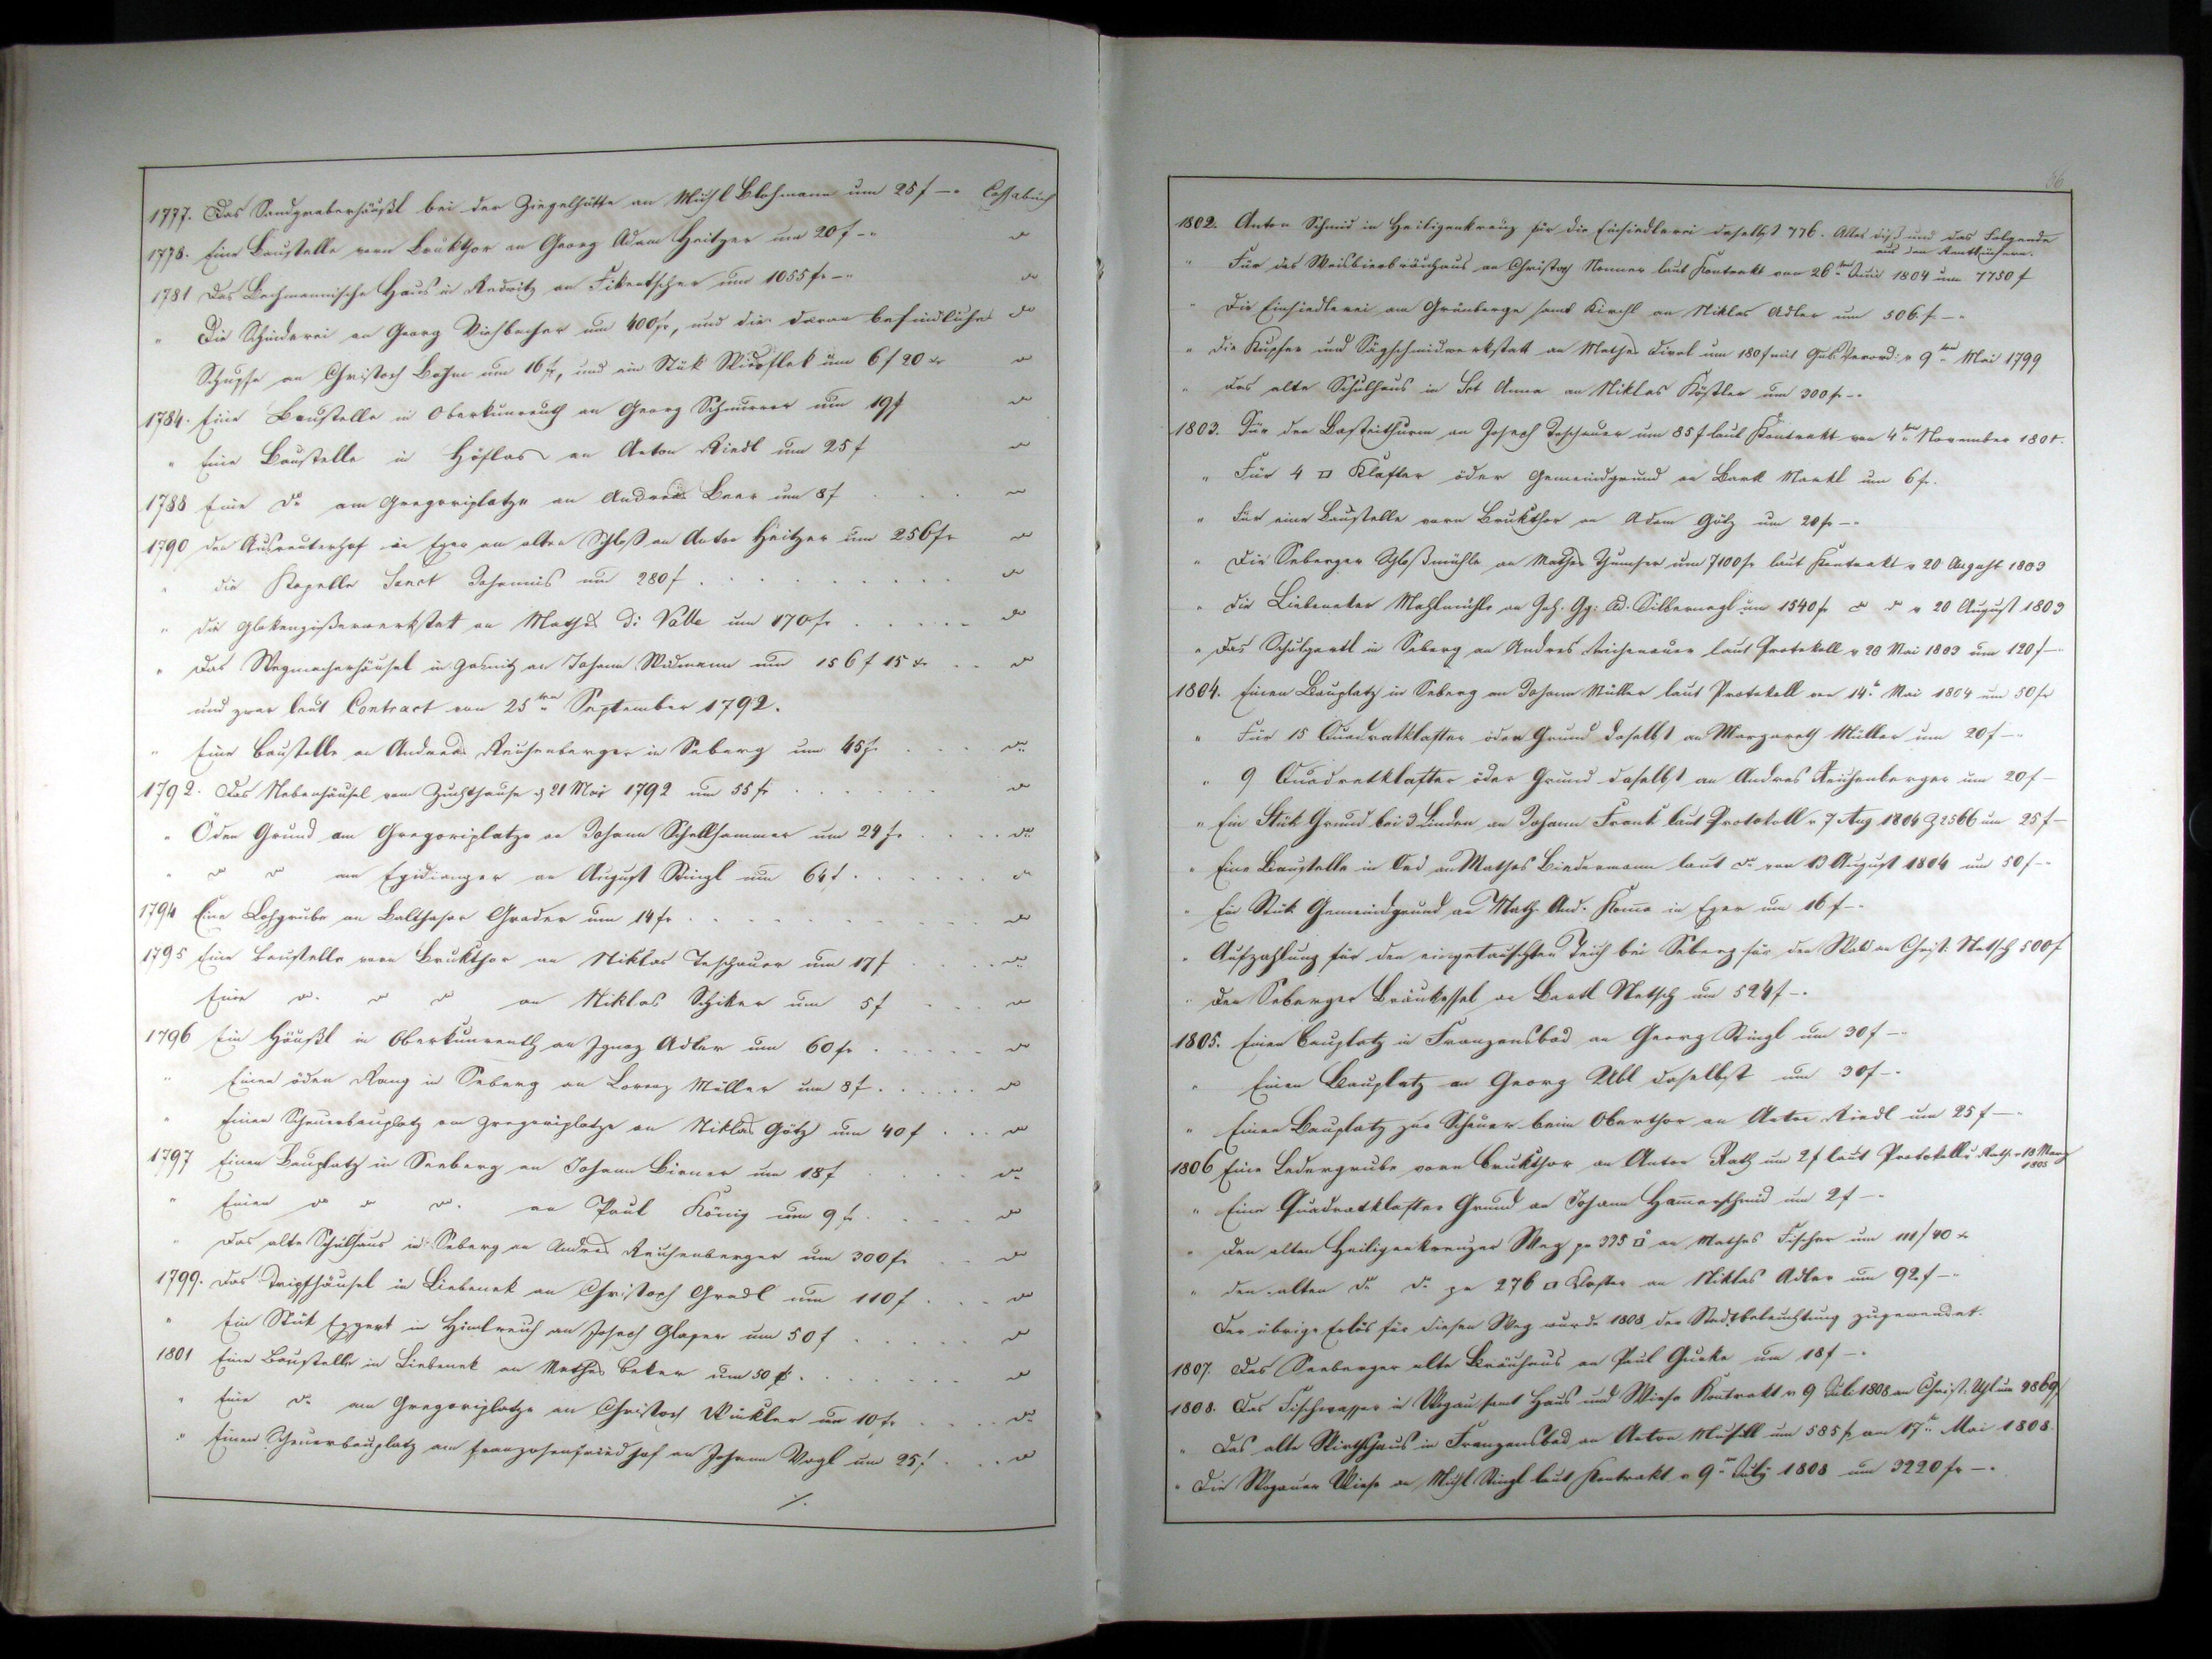 1777. Das Sandgraberhäußl bei der Ziegelhütte an Michl Bloßmann um 25 f –„ Cassabuch
1778. Eine Baustelle vorn Brukthor an Georg Adam Heitzer um 20 f –„ do
1781 Das Bachmannische Haus in Redwitz an Fikentscher um 1055 fr –„ do
„ Die Schinderei an Georg Viehbacher um 400 fr, und die daran befindliche do
Schupfe an Christoph Böhm um 16 fr, und ein Stük um 6 f 20 xr do
1784. Eine Baustelle in Oberkunreuth an Georg Schnurrer um 19 f do
„ Eine Baustelle in Höflas an Anton Riedl um 25 f do
1788 Eine do am Gregoriplatze an Andreas Baar um 8 f . . . do
1790 Den Ausreuterhof in Eger am alten Schloß an Anton Heitzer um 256 fr do
„ die Kapelle Sanct Johannis um 280 f . . . . . . do
„ Die Glokengießerwerkstatt an Mathes di Valle um 170 fr . . . . . do
„ Das Wegmacherhäusel in an Johann Widmann um 156 f 15 xr . . do
und zwar laut Contract von 25ten September 1792.
„ Eine Baustelle an Andreas Reichenberger in Seberg um 45 fr . . . do
1792. Das Nebenhäusel vom Zuchthause 21 Mai 1792 um 55 fr . . . . do
„ Öden Grund am Gregoriplatze an Johann Schellhammer um 24 fr . . . do
„ do do am Egidianger an August Stingl um 64 f . . . . . do
1794 Eine Lohgrube an Balthasar Grader um 14 fr . . . . . do
1795 Eine Baustelle vorn Brukthor an Niklas Teschauer um 17 f . . . do
Eine do. do do an Niklas Schiker um 5 f . . . do
1796 Ein Häußl in Oberkunreuth an Ignaz Adler um 60 fr . . . . . do
„ Einen öden Rang in Seberg an Lorenz Müller um 8 f . . . . do
„ Einen Scheuerbauplatz am Gregoriplatze an Niklas Götz um 40 f . . . do
1797 Einen Bauplatz in Seeberg an Johann Birner um 18 f . . do
„ Einen do do do. an Paul König um 9 fr . . . . do
„ Das alte Schulhaus in Seberg an Andreas Reichenberger um 300 fr . . do
1799. Das Tripfhäusel in Liebenek an Christoph Gradl um 110 f . . . do
„ Ein Stük Eggert in Himlreich an Joseph Glaßer um 50 f . . . . do
1801 Eine Baustelle in Liebenek an Mathes Beker um 50 fr . . . . . do
„ Eine do am Gregoriplatze an Christoph Winkler um 10 fr . . . . do
„ Einen Scheuerbauplatz am Franzosenfriedhof an Johann Vogl um 25 f . . . do
./.
56
1802. Anton Schmid in Heiligenkreuz für die Einsiedlerei daselbst 776. Alles dieß und das Folgende
aus den Amtbüchern.
„ Für das Weisbierbräuhaus an Christoph Nonner laut Kontrakt von 26ten Juni 1804 um 7750 f
„ Die Einsiedlerei am Grünberge samt Kirchl an Niklas Adler um 506 f –„
„ Die Kupfer und Sägschmidwerkstat an Mathes um 180 f mit Gub. Verord: v 9ten Mai 1799
„ das alte Schulhaus in Sct Anna an Niklas Köstler um 300 fr –„
1803. Für den Basteithurm an Joseph Teschauer um 85 f laut Kontrakt von 4ten November 1801.
„ Für 4 □ Klafter öder Gemeindgrund an Bartl Markl um 6 fr.
„ Für eine Baustelle vorn Brukthor an Adam Götz um 20 fr –„
„ Die Seberger Schloßmühle an Mathes Zumser um 7100 fr laut Kontrakt v 20 August 1803
„ Die Liebeneker Mahlmühle an Joh. Gg: Ad. Silbernagl um 1540 fr do do v 20 August 1803
„ Das Schulgartl in Seberg an Andres Aichenauer laut Protokoll v 20 Mai 1803 um 120 f –
1804. Einen Bauplatz in Seberg an Johann Müller laut Protokoll von 14t Mai 1804 um 50 fr
„ Für 15 Quadratklafter öden Grund daselbst an Margareth Müller um 20 f –„
„ 9 Quadratklafter öder Grund daselbst an Andres Reichenberger um 20 f –
„ Ein Stük Grund bei 3 Linden an Johann Frank laut Protokoll v 7 Aug 1804 Z 2566 um 25 f –
„ Eine Baustelle in Oed an Mathes Biedermann laut do von 13 August 1804 um 50 f –„
„ Ein Stük Gemeindgrund an Math. And. Koma in Eger um 16 f –„
„ Aufzahlung für den eingetauschten Teich bei Seberg für den Wald an Christ: Netsch 500 f
„ Den Seberger Bräukessel an Bartl Netsch um 524 f –„
1805. Einen Bauplatz in Franzensbad an Georg Stingl um 30 f –„
„ Einen Bauplatz an Georg Übl daselbst um 30 f –„
„ Einen Bauplatz zur Scheuer beim Oberthor an Anton Riedl um 25 f –„
1806 Eine Ledergrube vorn Brukthor an Anton Rath um 2 f laut Protokoll v 13 März
1805
„ Eine Quadratklafter Grund an Johann Hamerschmid um 2 f –„
„ den alten Heiligenkreuzer Weg pr 335 □° an Mathes Fischer um 111 f 40 x
„ den alten do do pr 276 □ Klafter an Niklas Adler um 92 f –„
Der übrige Erlös für diesen Weg wurde 1808 der Stadtbeleuchtung zugewendet.
1807. Das Seeberger alte Bräuhaus an Paul Queke um 18 f –„
1808. Das Fischwasser in Wogau samt Haus und Wiese Kontrakt v 9 Juli 1808 an Christ. Uhl um 9869 f
„ Das alte Wirthshaus in Franzensbad an Anton Musill um 585 fr am 17t Mai 1808.
„ Die Wogauer Wiese an Michl Stingl laut Kontrakt v 9ten July 1808 um 3220 fr –„